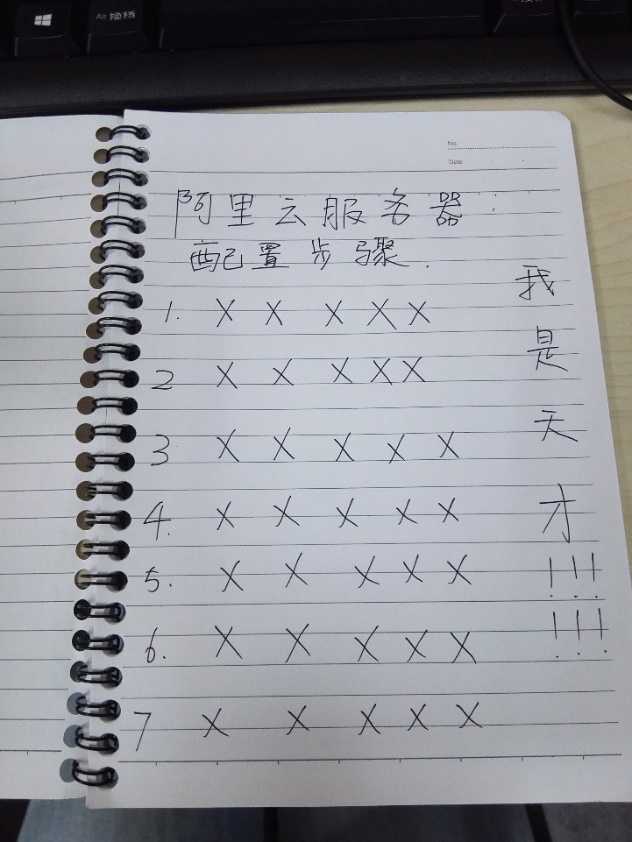 No.
Date
阿里云服务器:
配置步骤.
1. X X X X X
2 X X X X X
3 X X X X X
4. X X X X X
5. X X X X X
6. X X X X X
7 X X X X X
我
是
天
才
!!!
!!!